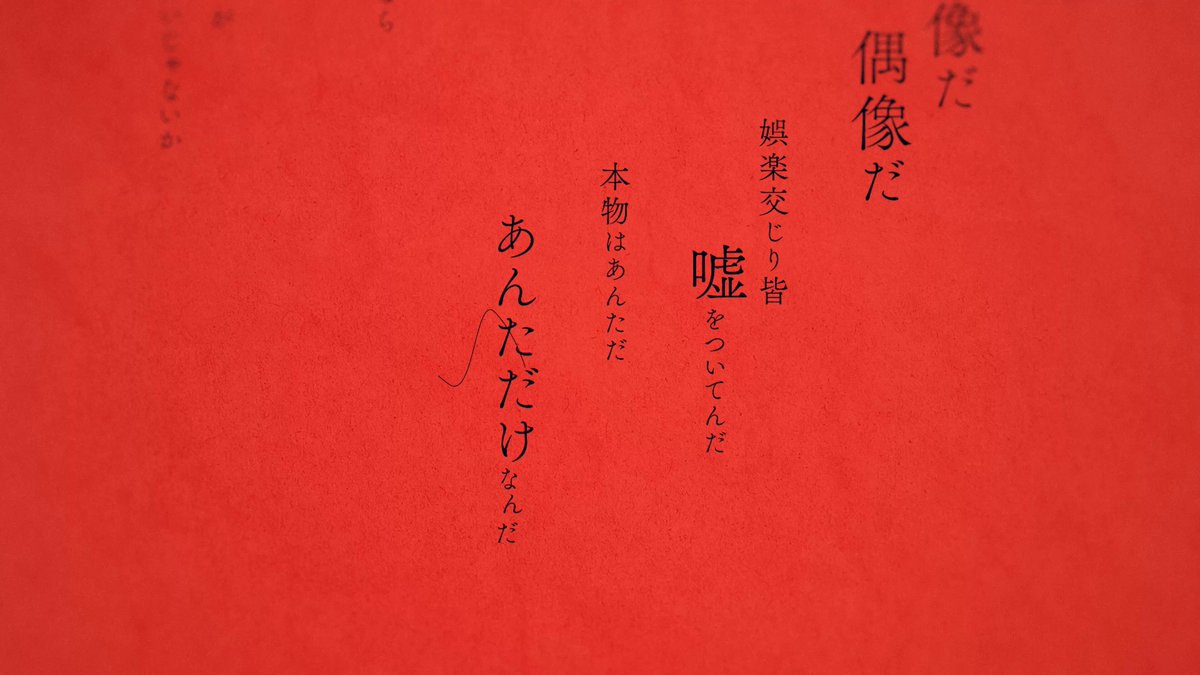 像だ
偶像だ
娯楽交じり皆
嘘をついてんだ
本物はあんただ
あんただけなんだ
ら
が
いじゃないか